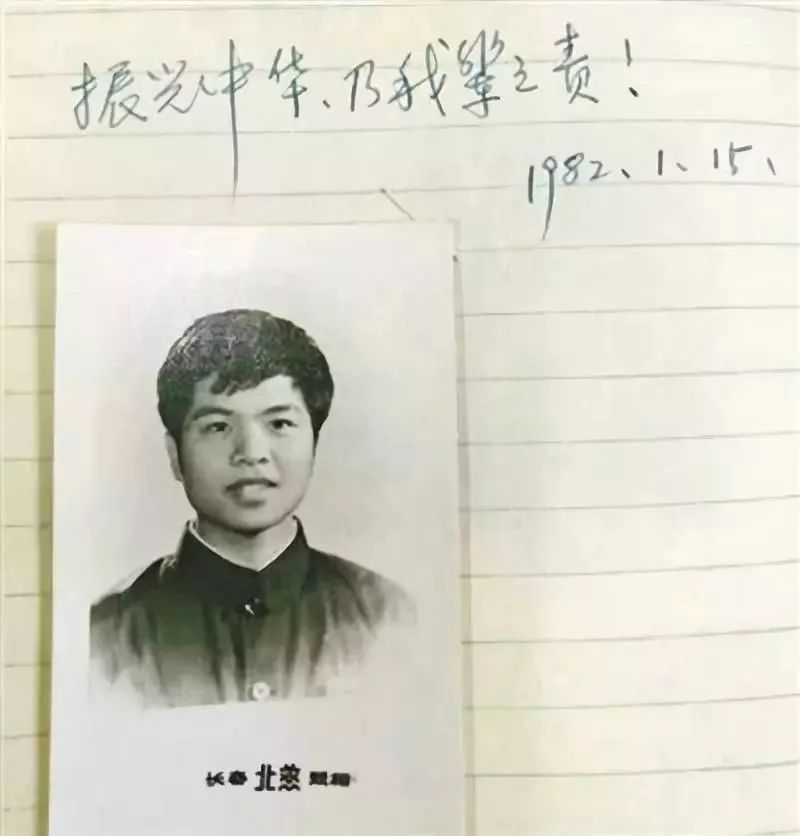 振兴中华、乃我辈之责!
1982、1、15、
长春 北燕 照相